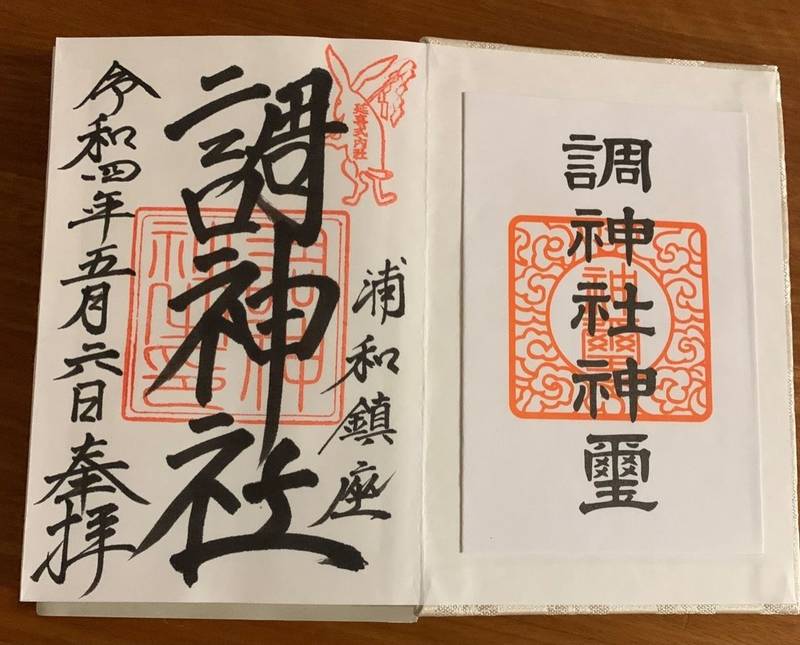 調神社神璽
延喜式内社
浦和鎮座
調神社
令和四年五月六日奉拝